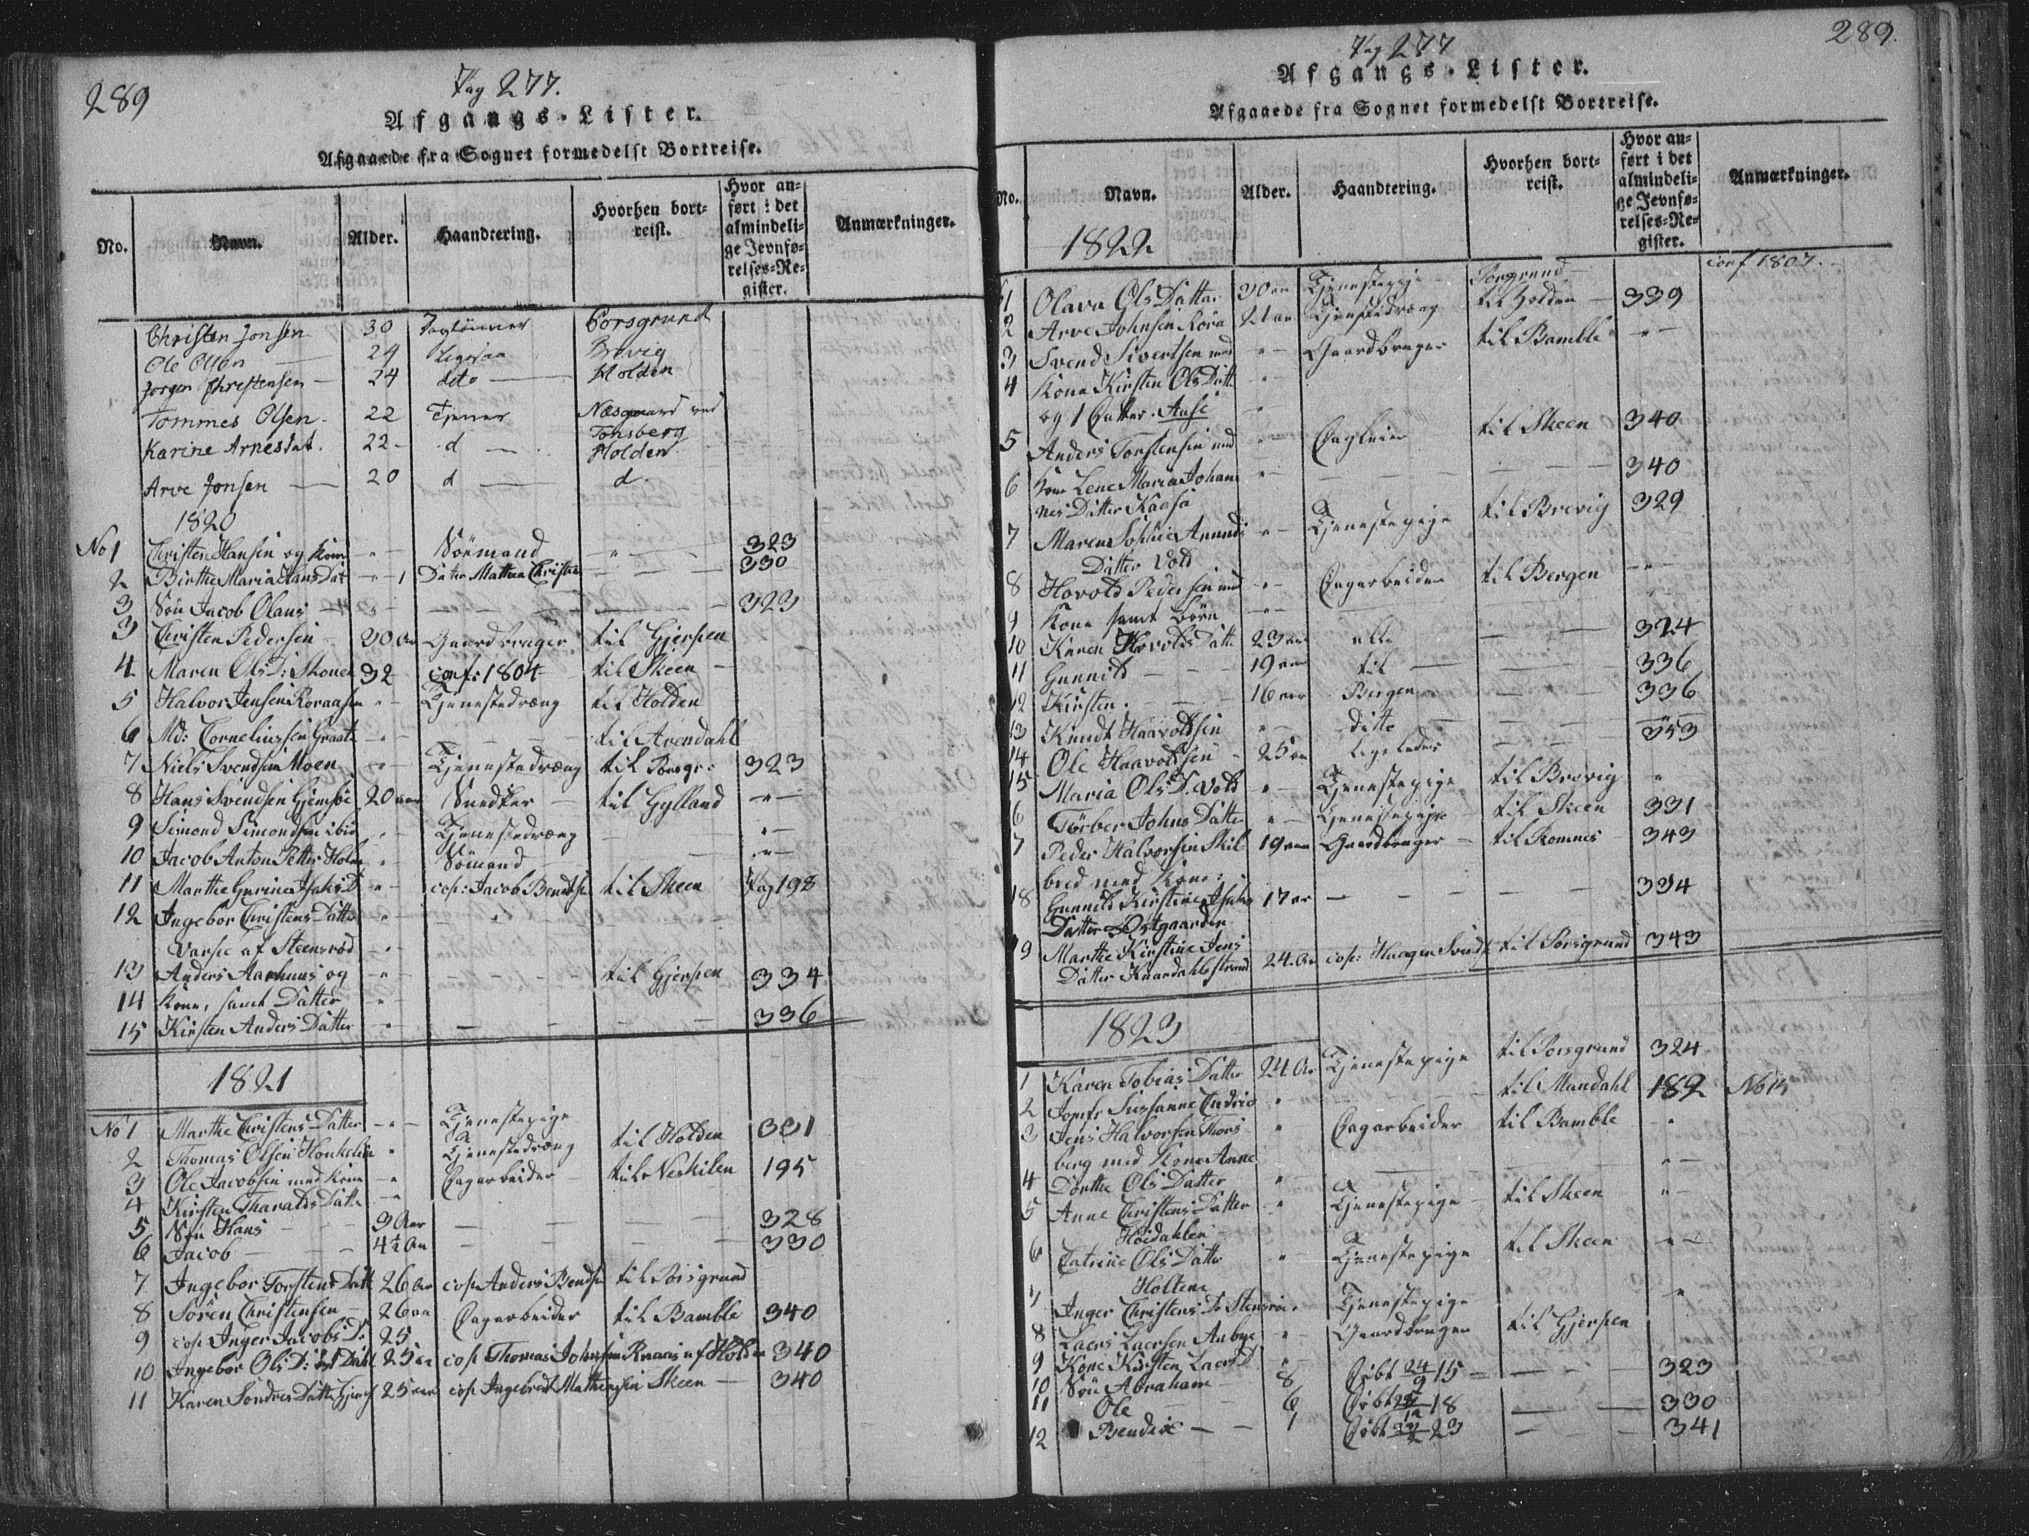 289
Pag 277.
Afgangs-Lister.
Afgaaede fra Sognet formedelst Bortreise.
No. Navn. Alder. Haandtering. Hvorhen bortreist. Hvor anført i det almindelige Jevnførelses-Register. Anmærkninger.
Christen Jonsen 30 Porsgrund
Ole Olsen 24 Brevig
Jørgen Christensen 24 dito Holden
Tommes Olsen 22 Tjener Næsgaard ved Tonsberg
Karine Arnesdat. 22 d Holden
Arve Jonsen 20 d d.
1820
No 1 Christen Hansen og Kone " Sömand " 323
2 Birthe Maria Hans Dat " 1 Dater Mathea Christen 330
3 Sön Jacob Olaus " 323
3 Christen Pedersen 30 Aar Gaardbruger til Gjerpen
4 Maren Ols D: Skonen 32 conf: 1804 til Skeen
5 Halvor Jensen Roraasen " Tjenestedræng til Holden
6 Md: Cornelinssen Graate " til Arendahl
7 Niels Svendsen Moen " Tjenestedræng til Porsgr: 323
8 Hans Svendsen Gjemsöe 20 aar Snedker til Gylland "
9 Simond Simondsen ibid " Tjenestedræng "
10 Jacob Anton Petter Holm " Sömand "
11 Marthe Gurine Isaks D " cop: Jacob Bendtsen til Skeen Pag 198
12 Ingebor Christens Datter "
Varpe af Steensrød "
13 Anders Aarhuus og " til Gjerpen 334
14 Kone, samt Datter "
15 Kirsten Anders Datter " 336
1821
No 1 Marthe Christens Datter " Tjenestepige til Holden 331
2 Thomas Olsen " Tjenestedræng
3 Ole Jacobsen med Kone " Dagarbeider til Neskilen 195
4 Kirsten Tharalds Datt "
5 Sön Hans 9 Aar 328
6 Jacob 4½ Aar 330
7 Ingebor Torstens Datt 26 Aar cop Anders Bendsen til Porsgrund
8 Sören Christensen 26 aar Dagarbeider til Bamble 340
9 cop Inger Jacobs D: 25
10 Ingebor Ols D: Dahl 25 aar cop Thomas Johnsen Raaas af Holden 340
11 Karen Sondres Datter Gjems 25 aar cop Ingebret Mathiesen Skeen 340
289.
Pag 277
Afgangs-Lister.
Afgaaede fra Sognet formedelst Bortreise.
No. Navn. Alder. Haandtering. Hvorhen bortreist. Hvor anført i det almindelige Jevnførelses-Register. Anmærkninger.
1822
1 Olava Ols Datter 30 aar Tjenestepige Porsgrund conf 1807.
2 Arve Johnsen Rora 21 aar Tjenestedræng til Holden 339
3 Svend Sivertsen med " Gaardbruger til Bamble "
4 Kone Kirsten Ols Datt "
og 1 Datter. Aase "
5 Anders Torstensen med " Dagleier til Skeen 340
6 Kone Lene Maria Johannes Datter Kaasa " 340
7 Maren Sophie Amunds Datter Vold " Tjenestepige til Brevig 329
8 Hovold Pedersen med " Dagarbeider til Bergen "
9 Kone samt Börn "
10 Karen Hovolds Datt 23 aar alle 324
11 Gunnild 19 aar til 336
12 Kirsten. 16 aar Bergen 336
13 Knudt Haavoldsen " ditto 353
14 Ole Haavoldsen 25 aar ligeledes
15 Maria Ols D. Vold " Tjenestepige til Brevig "
6 Törber Johns Datte " Tjenestepige til Skeen 331
7 Peder Halvorsen Skilbred med Kone: 19 aar Gaardbruger til Romnes 343
18 Gunnild Kirstine Isaks Datter Østgaarden 17 ar 334
19 Marthe Kirstine Jens Datter Knardahlsstrand 24 Ar cop: Haagen Svends til Porsgrund 343
1823
1 Karen Tobias Datter 24 Ar Tjenestepige til Porsgrund 324
2 Jomfr Susanne " til Mandahl 182 No 15
3 Jens Halvorsen Thorsberg med Kone Anne " Dagarbeider til Bamble "
4 Dorthe Ols Datter " "
5 Anne Christens Datter Höidahlen " Tjenestepige til Skeen "
6 Catrine Ols Datter Holtene " Tjenestepige til Skeen "
7 Inger Christens D. Stensröe. Tjenestepige " "
8 Laers Laersen Aabye " Gaardbruger til Gjerpen
9 Kone Kirsten Laers D.
10 Sön Abraham 8 Döbt 24/9 15 323
11 Ole 6 Döbt 18 330
12 Bendix 1 Döbt 23 341